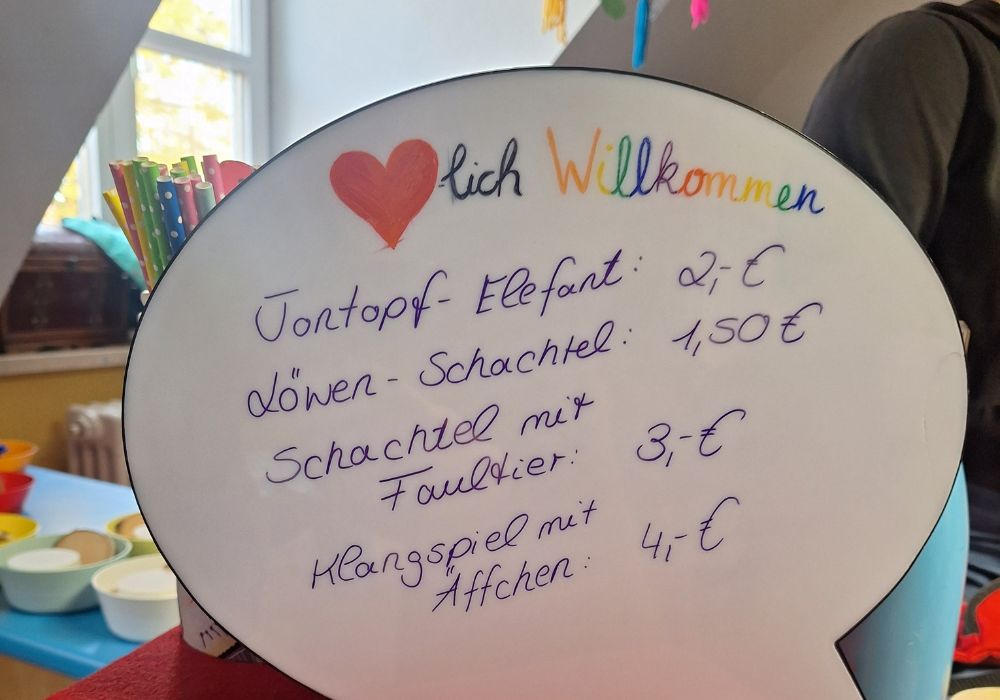 ❤lich Willkommen
Tontopf- Elefant: 2,- €
Löwen - Schachtel: 1,50 €
Schachtel mit
Faultier: 3,- €
Klangspiel mit
Äffchen: 4,- €